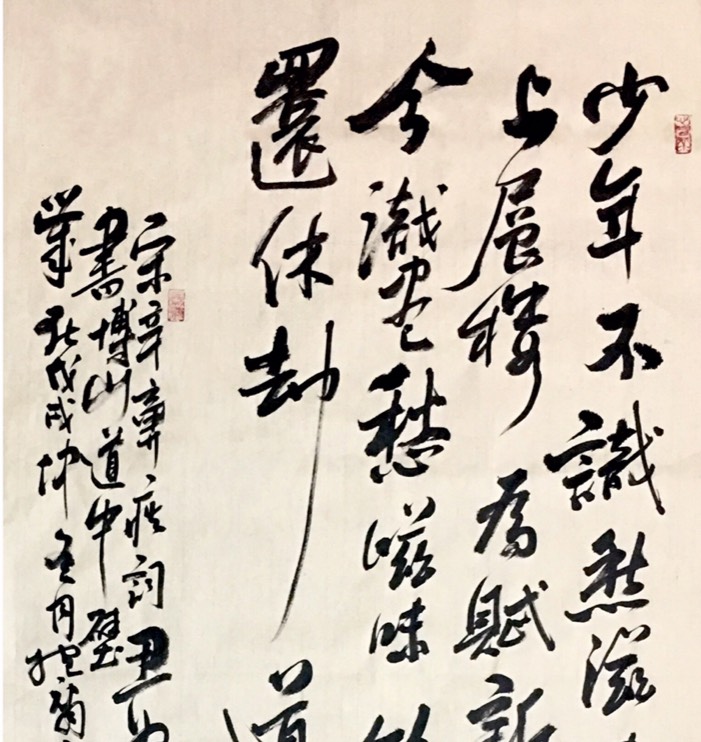 少年不識愁滋
上層樓為賦新
今識盡愁滋味
還休却道
宋辛棄疾詞丑奴
書博山道中壁
戊戌仲冬月